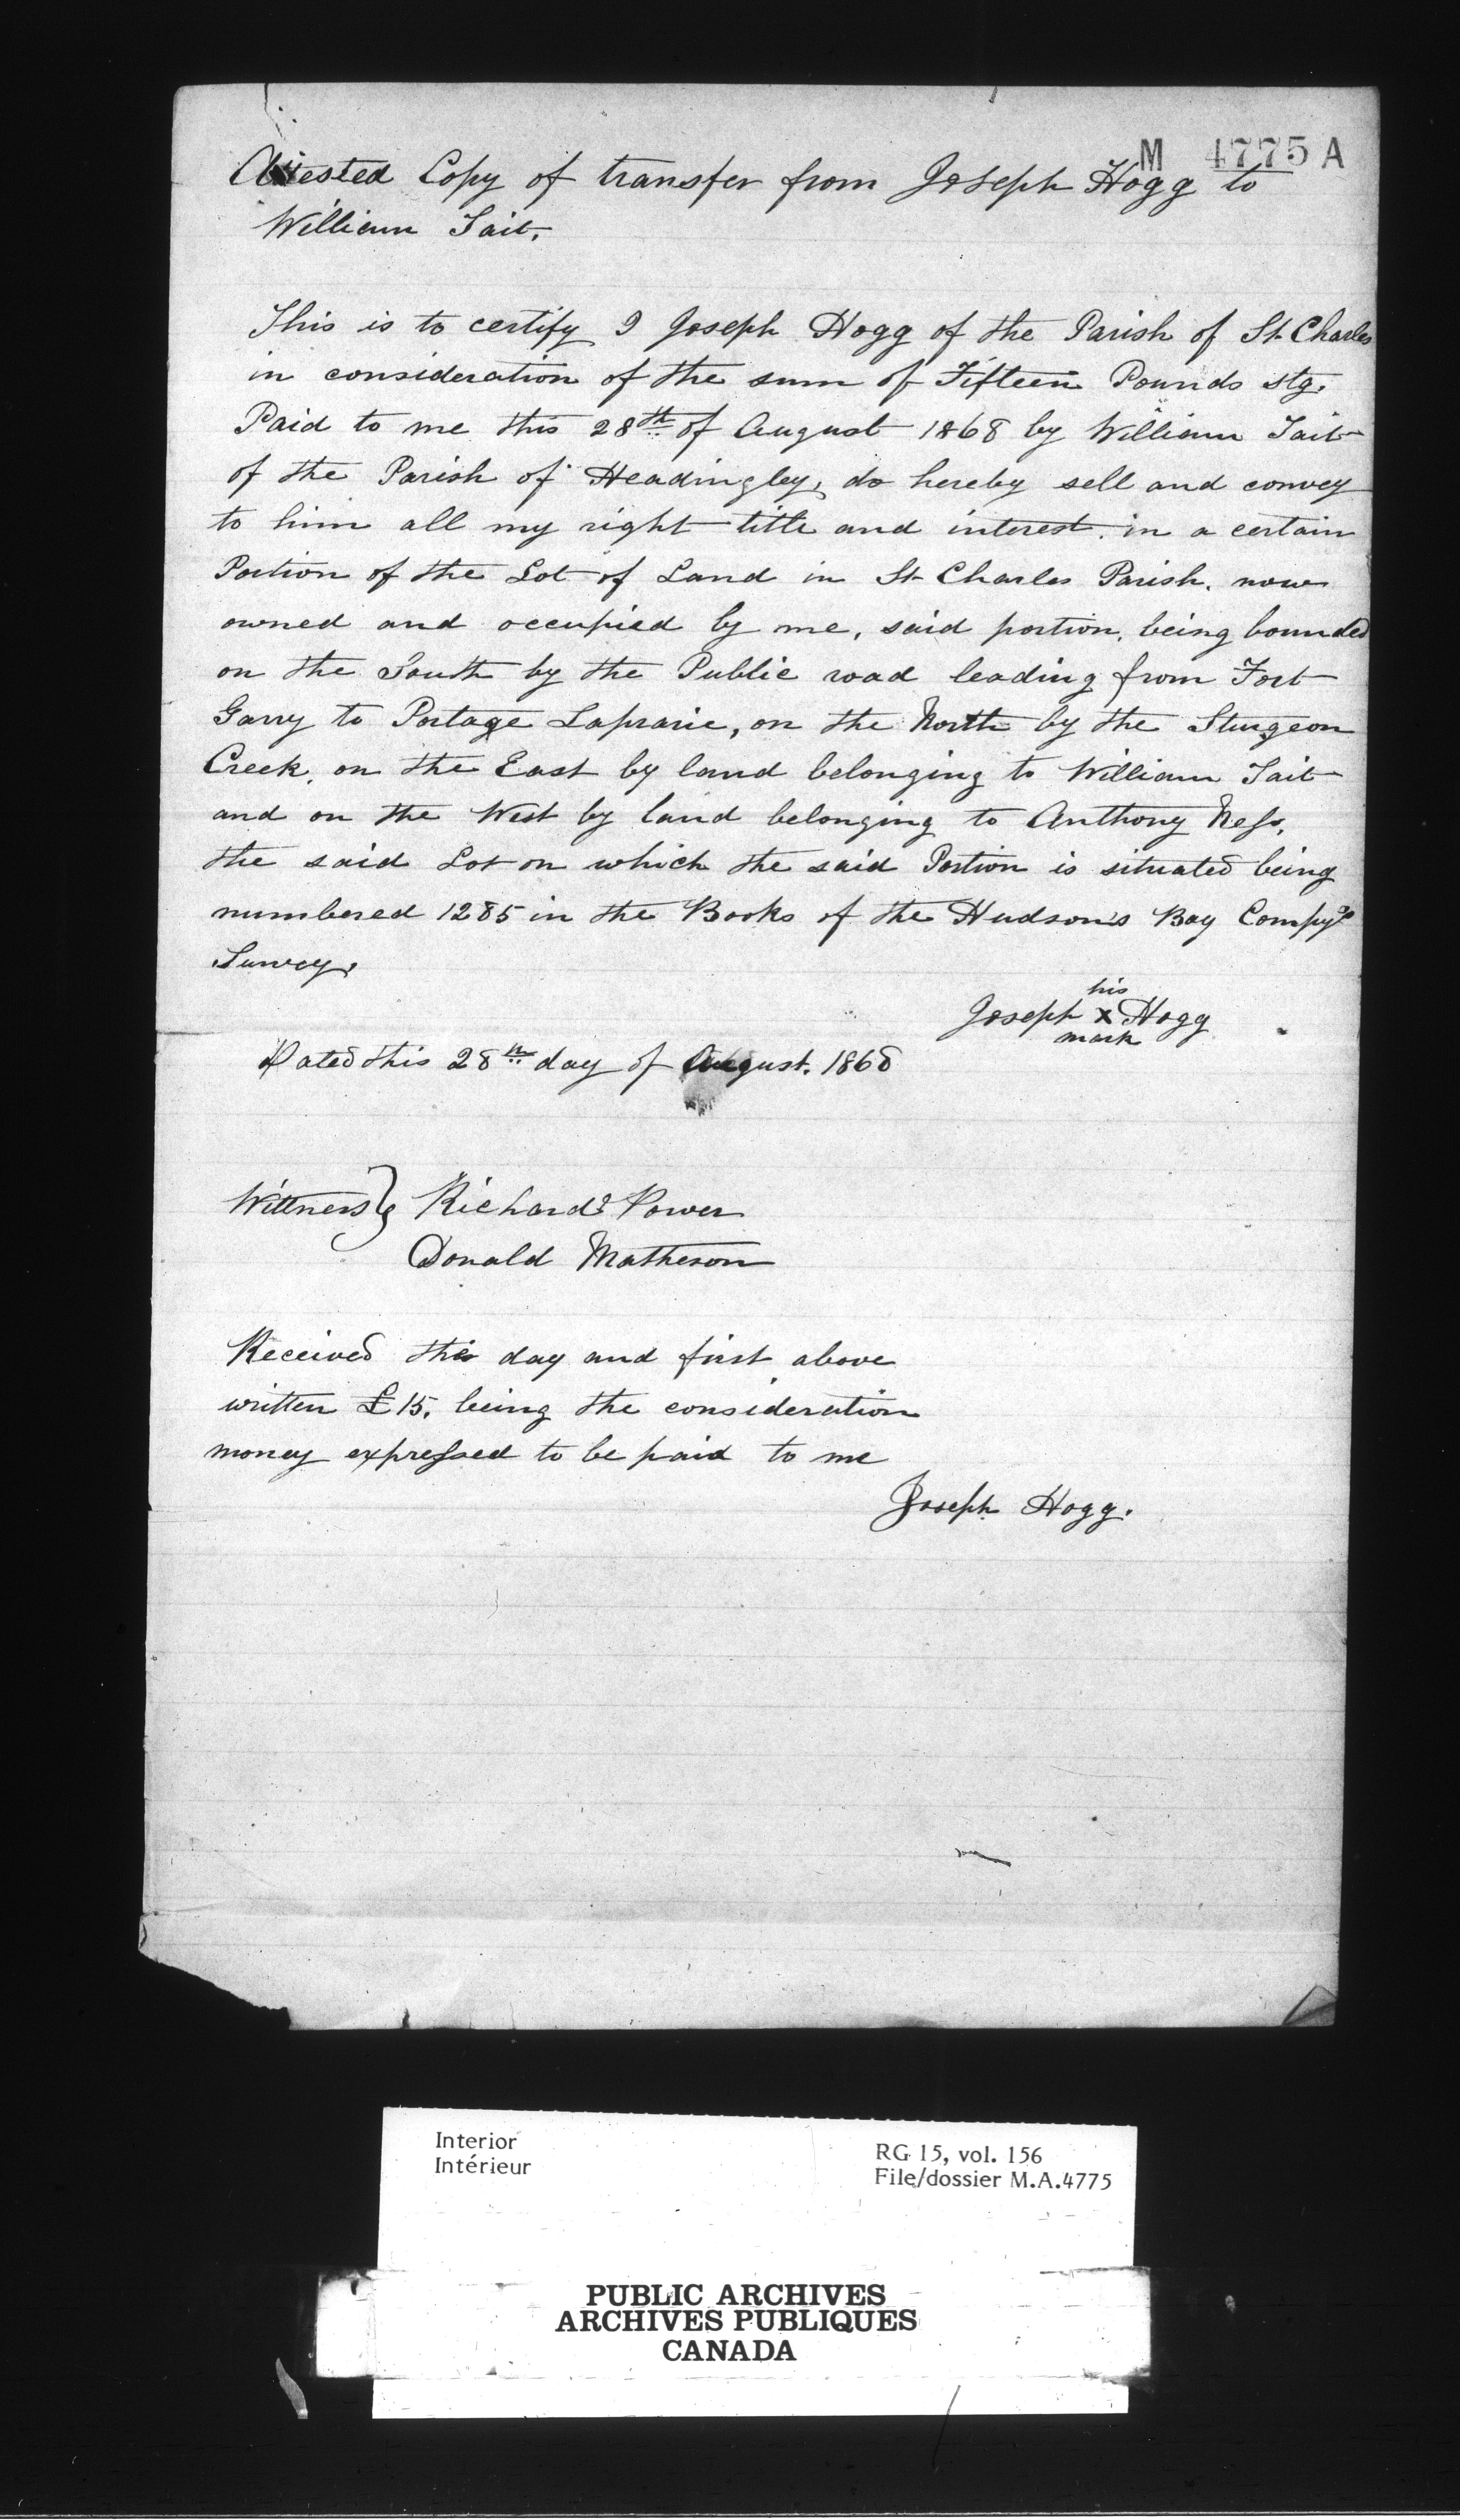 M 4775 A
Attested Copy of transfer from Joseph Hogg to
William Tait.
This is to certify I Joseph Hogg of the Parish of St. Charles
in consideration of the sum of Fifteen Pounds stg.
Paid to me this 28th of August 1868 by William Tait
of the Parish of Headingley, do hereby sell and convey
to him all my right title and interest in a certain
Portion of the Lot of Land in St Charles Parish. now
owned and occupied by me, said portion, being bounded
on the South by the Public road leading from Fort
Garry to Portage Laprarie, on the North by the Sturgeon
Creek, on the East by land belonging to William Tait
and on the West by land belonging to Anthony Ness,
the said Lot on which the said Portion is situated being
numbered 1285 in the Books of the Hudson's Bay Compys
Survey.
his
Joseph x Hogg
mark
Dated this 28th day of August. 1868
Wittness } Richard Power
Donald Matheson
Received this day and first above
written £15. being the consideration
money expressed to be paid to me
Joseph Hogg.
Interior
Intérieur
RG 15, vol. 156
File/dossier M.A.4775
PUBLIC ARCHIVES
ARCHIVES PUBLIQUES
CANADA